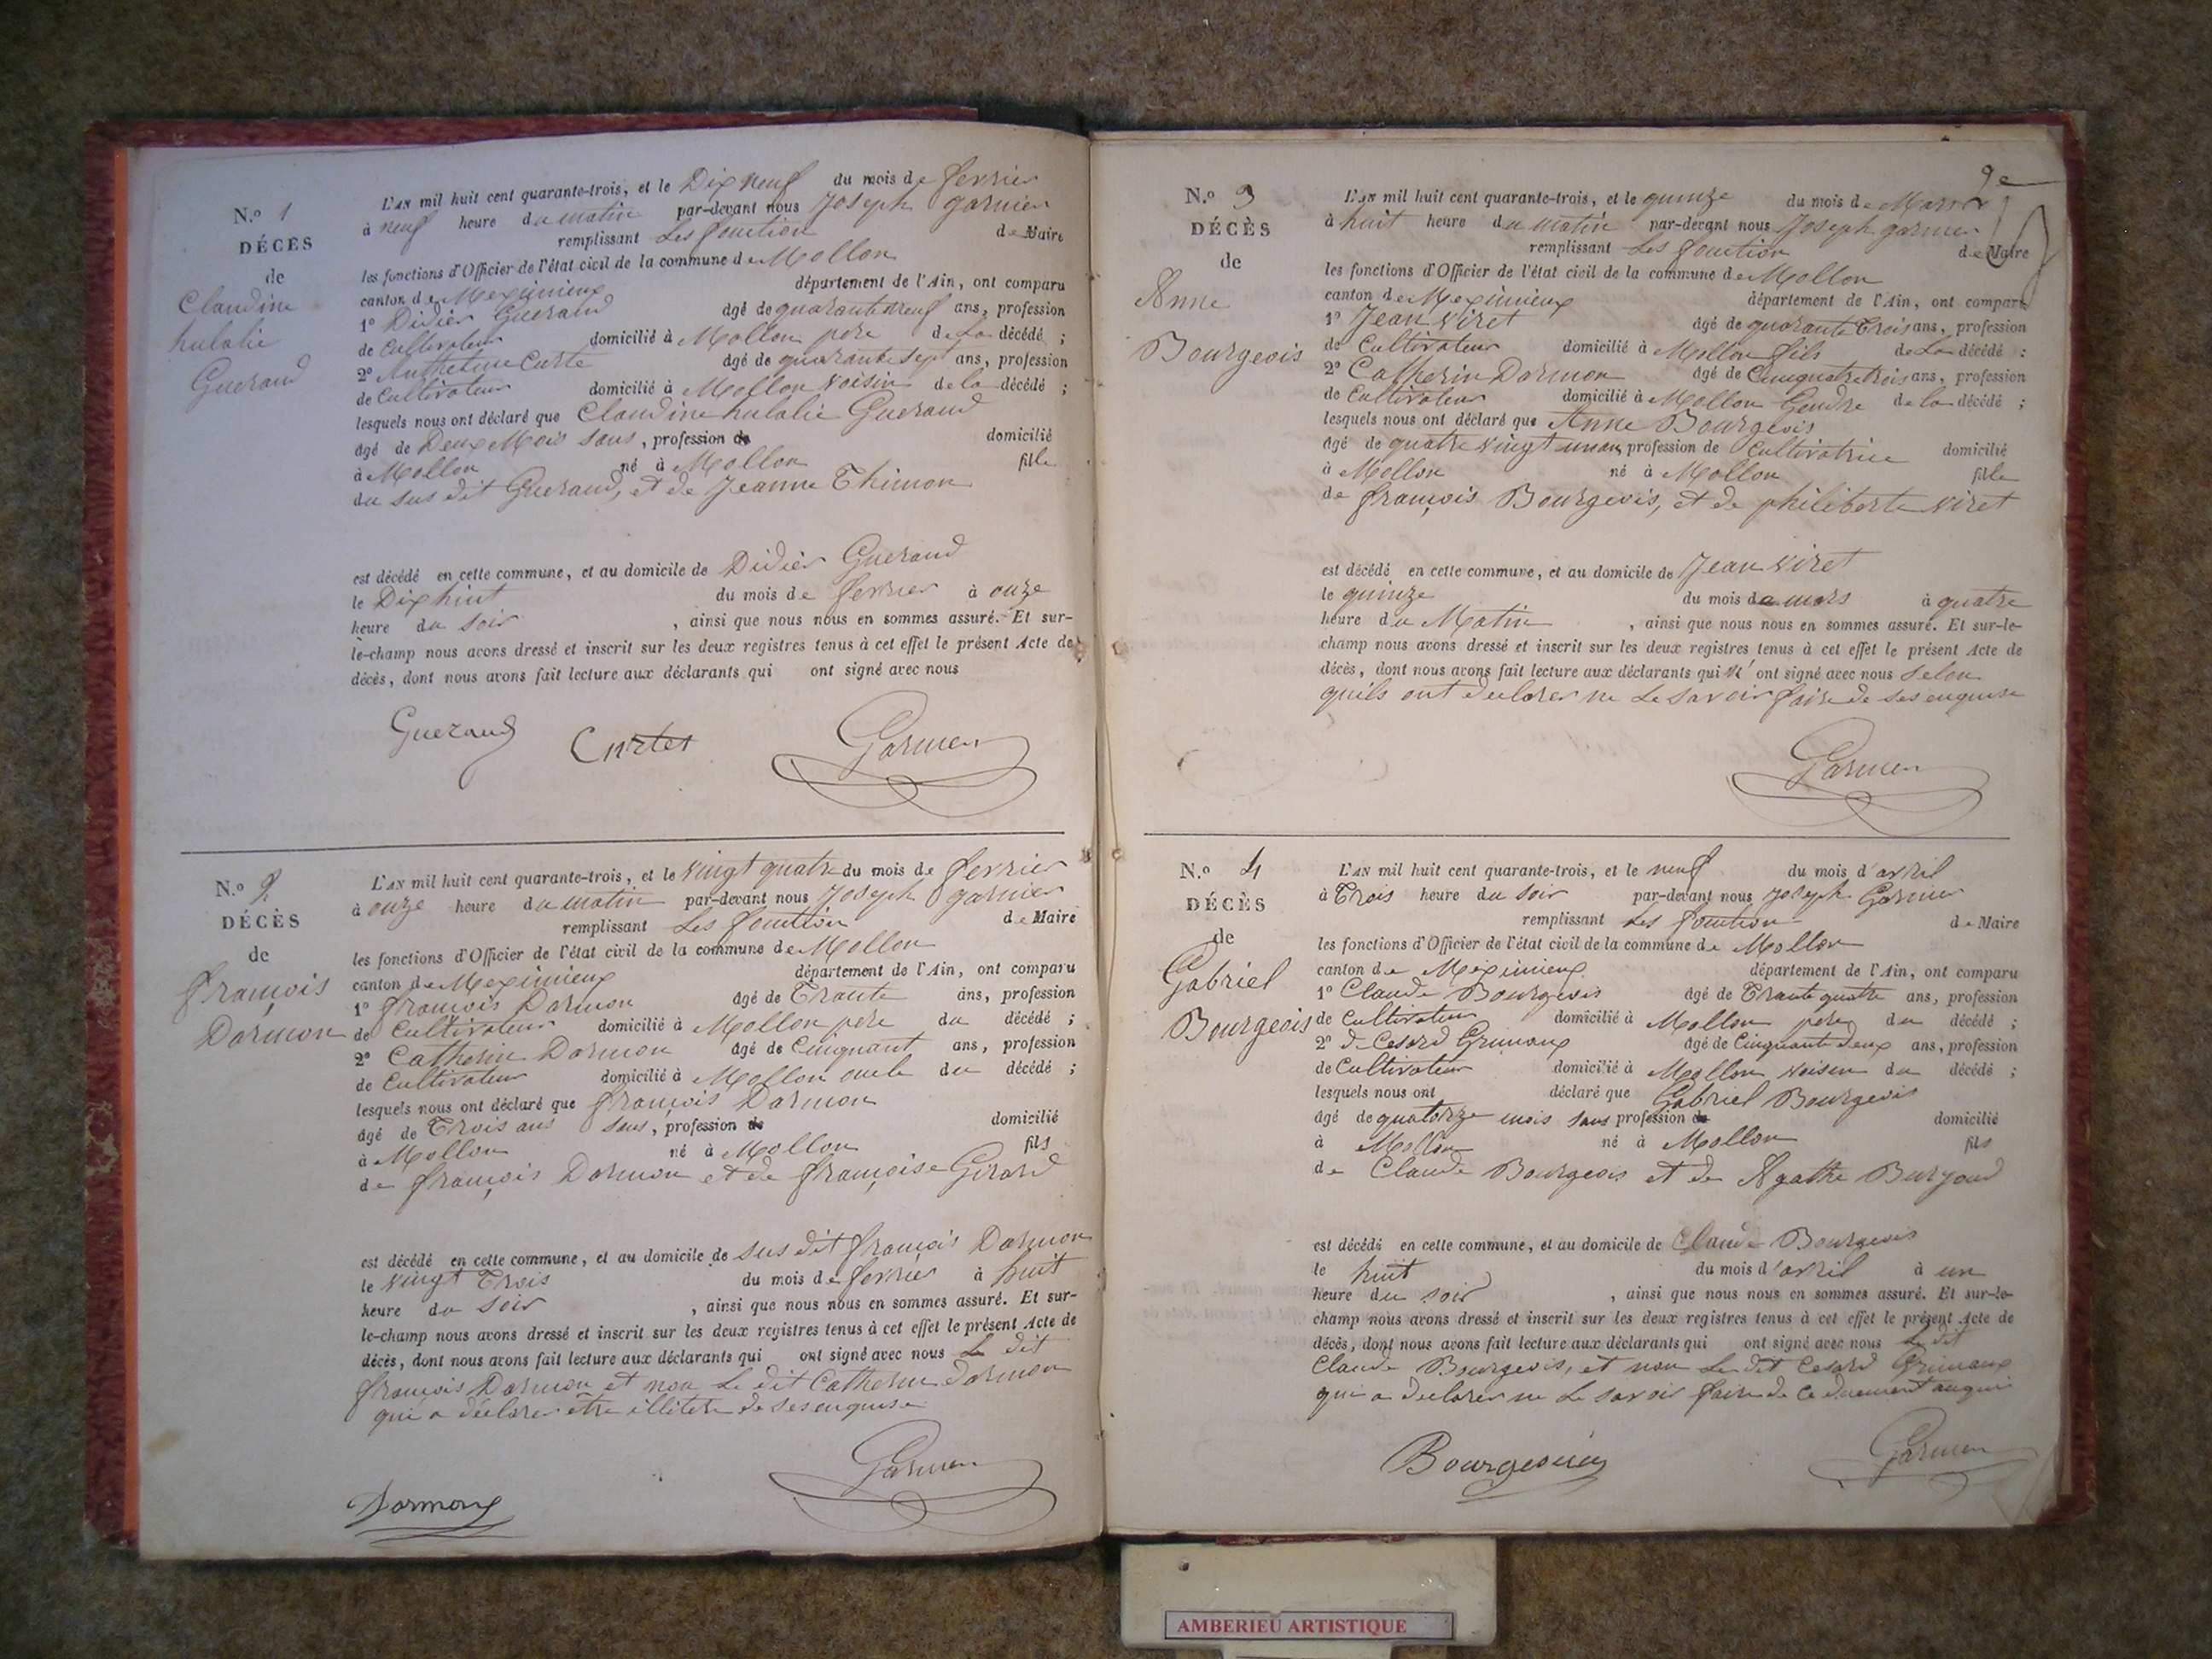 N.º 1
DÉCÈS
de
Claudine
hulalie
Gueraud
L'AN mil huit cent quarante-trois, et le Dix neuf du mois de fevrier
à neuf heure du matin par-devant nous Joseph garnier
remplissant Les fonction de Maire
les fonctions d'Officier de l'état civil de la commune de Mollon
canton de Meximieux département de l'Ain, ont comparu
1º Didier Gueraud âgé de quarante neuf ans, profession
de Cultivateur domicilié à Mollon pere de La décédé ;
2º Anthelme Curte âgé de quarante sept ans, profession
de Cultivateur domicilié à Mollon voisin de la décédé ;
lesquels nous ont déclaré que Claudine hulalie Gueraud
âgé de Deux Mois sans, profession de domicilié
à Mollon né à Mollon fille
du sus dit Gueraud, et de Jeanne Thimon
est décédé en cette commune, et au domicile de Didier Gueraud
le Dix huit du mois de fevrier à onze
heure du soir , ainsi que nous nous en sommes assuré. Et sur-
le-champ nous avons dressé et inscrit sur les deux registres tenus à cet effet le présent Acte de
décès, dont nous avons fait lecture aux déclarants qui ont signé avec nous
Gueraud Curtet Garnier
N.º 2
DÉCÈS
de
françois
Dormon
L'AN mil huit cent quarante-trois, et le vingt quatre du mois de fevrier
à onze heure du matin par-devant nous Joseph garnier
remplissant Les fonction de Maire
les fonctions d'Officier de l'état civil de la commune de Mollon
canton de Meximieux département de l'Ain, ont comparu
1º françois Dormon âgé de Trante ans, profession
de Cultivateur domicilié à Mollon pere du décédé ;
2º Catherin Dormon âgé de Cinquant ans, profession
de Cultivateur domicilié à Mollon oncle du décédé ;
lesquels nous ont déclaré que françois Dormon
âgé de Trois ans sans, profession de domicilié
à Mollon né à Mollon fils
de françois Dormon et de françoise Girard
est décédé en cette commune, et au domicile de sus dit françois Dormon
le vingt Trois du mois de fevrier à huit
heure du soir , ainsi que nous nous en sommes assuré. Et sur-
le-champ nous avons dressé et inscrit sur les deux registres tenus à cet effet le présent Acte de
décès, dont nous avons fait lecture aux déclarants qui ont signé avec nous Le dit
françois Dormon et non Le dit Catherin Dormon
qui a déclarer être illiteré de ses enquise
Garnier
Dormon
N.º 3
DÉCÈS
de
Anne
Bourgeois
2e
L'AN mil huit cent quarante-trois, et le quinze du mois de Mars
à huit heure du matin par-devant nous Joseph garnier
remplissant Les fonction de Maire
les fonctions d'Officier de l'état civil de la commune de Mollon
canton de Meximieux département de l'Ain, ont comparu
1º Jean Viret âgé de quarante Trois ans, profession
de Cultivateur domicilié à Mollon fils de La décédé :
2º Catherin Dormon âgé de Cinquante trois ans, profession
de Cultivateur domicilié à Mollon Gendre de la décédé ;
lesquels nous ont déclaré que Anne Bourgeois
âgé de quatre vingt un ans profession de Cultivatrice domicilié
à Mollon né à Mollon fille
de françois Bourgeois, et de philiberte Viret
est décédé en cette commune, et au domicile de Jean Viret
le quinze du mois de mars à quatre
heure du Matin , ainsi que nous nous en sommes assuré. Et sur-le-
champ nous avons dressé et inscrit sur les deux registres tenus à cet effet le présent Acte de
décès, dont nous avons fait lecture aux déclarants qui n' ont signé avec nous selon
quils ont declarer ne Le savoir faire de ses enquise
Garnier
N.º 4
DÉCÈS
de
Gabriel
Bourgeois
L'AN mil huit cent quarante-trois, et le neuf du mois d'avril
à Trois heure du soir par-devant nous Joseph Garnier
remplissant Les fonction de Maire
les fonctions d'Officier de l'état civil de la commune de Mollon
canton de Meximieux département de l'Ain, ont comparu
1º Claude Bourgeois âgé de Trante quatre ans, profession
de Cultivateur domicilié à Mollon pere du décédé ;
2º Cesard Grimaux âgé de Cinquante deux ans, profession
de Cultivateur domicilié à Mollon voisin du décédé ;
lesquels nous ont déclaré que Gabriel Bourgeois
âgé de quatorze mois sans profession de domicilié
à Mollon né à Mollon fils
de Claude Bourgeois et de Agathe Burjoud
est décédé en cette commune, et au domicile de Claude Bourgeois
le huit du mois d'avril à un
heure du soir , ainsi que nous nous en sommes assuré. Et sur-le-
champ nous avons dressé et inscrit sur les deux registres tenus à cet effet le présent Acte de
décès, dont nous avons fait lecture aux déclarants qui ont signé avec nous Le dit
Claude Bourgeois, et non Le dit Cesard Grimaux
qui a declarer ne Le savoir faire de ce duement enquis
Garnier
AMBERIEU ARTISTIQUE